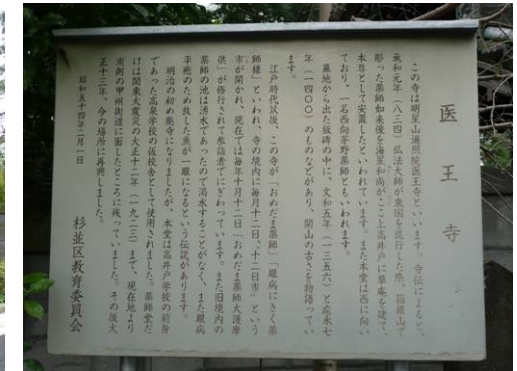 医王寺
この寺は明星山遍照院医王寺といいます。寺伝によると、
承和元年（八三四）弘法大師が東国を巡行した際、箱根山で
彫った薬師如来像を海星和尚がここ上高井戸に草庵を建て、
本尊として安置したといわれています。また本堂は西に向い
ており、一名西向茅野薬師ともいわれます。
墓地から出た板碑の中に、文和五年（一三五六）と応永七
年（一四〇〇）のものなどがあり、開山の古さを物語ってい
ます。
江戸時代以後、この寺が「おめだま薬師」「眼病にきく薬
師様」といわれ、寺の境内に毎月十二日、「十二日市」という
市が開かれ、現在では毎年十月十二日「おめだま薬師大護摩
供」が修行されて参詣者でにぎわっています。また旧境内の
薬師の池は湧水であったので渇水することがなく、また眼病
平癒のため放した魚が一眼になるという伝説があります。
明治の初め廃寺になりましたが、本堂は高井戸学校の前身
であった高泉学校の仮校舎として使用されました。薬師堂だ
けは関東大震災の大正十二年（一九二三）まで、現在地より
南側の甲州街道に面したところに残っていました。その後大
正十三年、今の場所に再興しました。
昭和五十四年二月一日
杉並区教育委員会